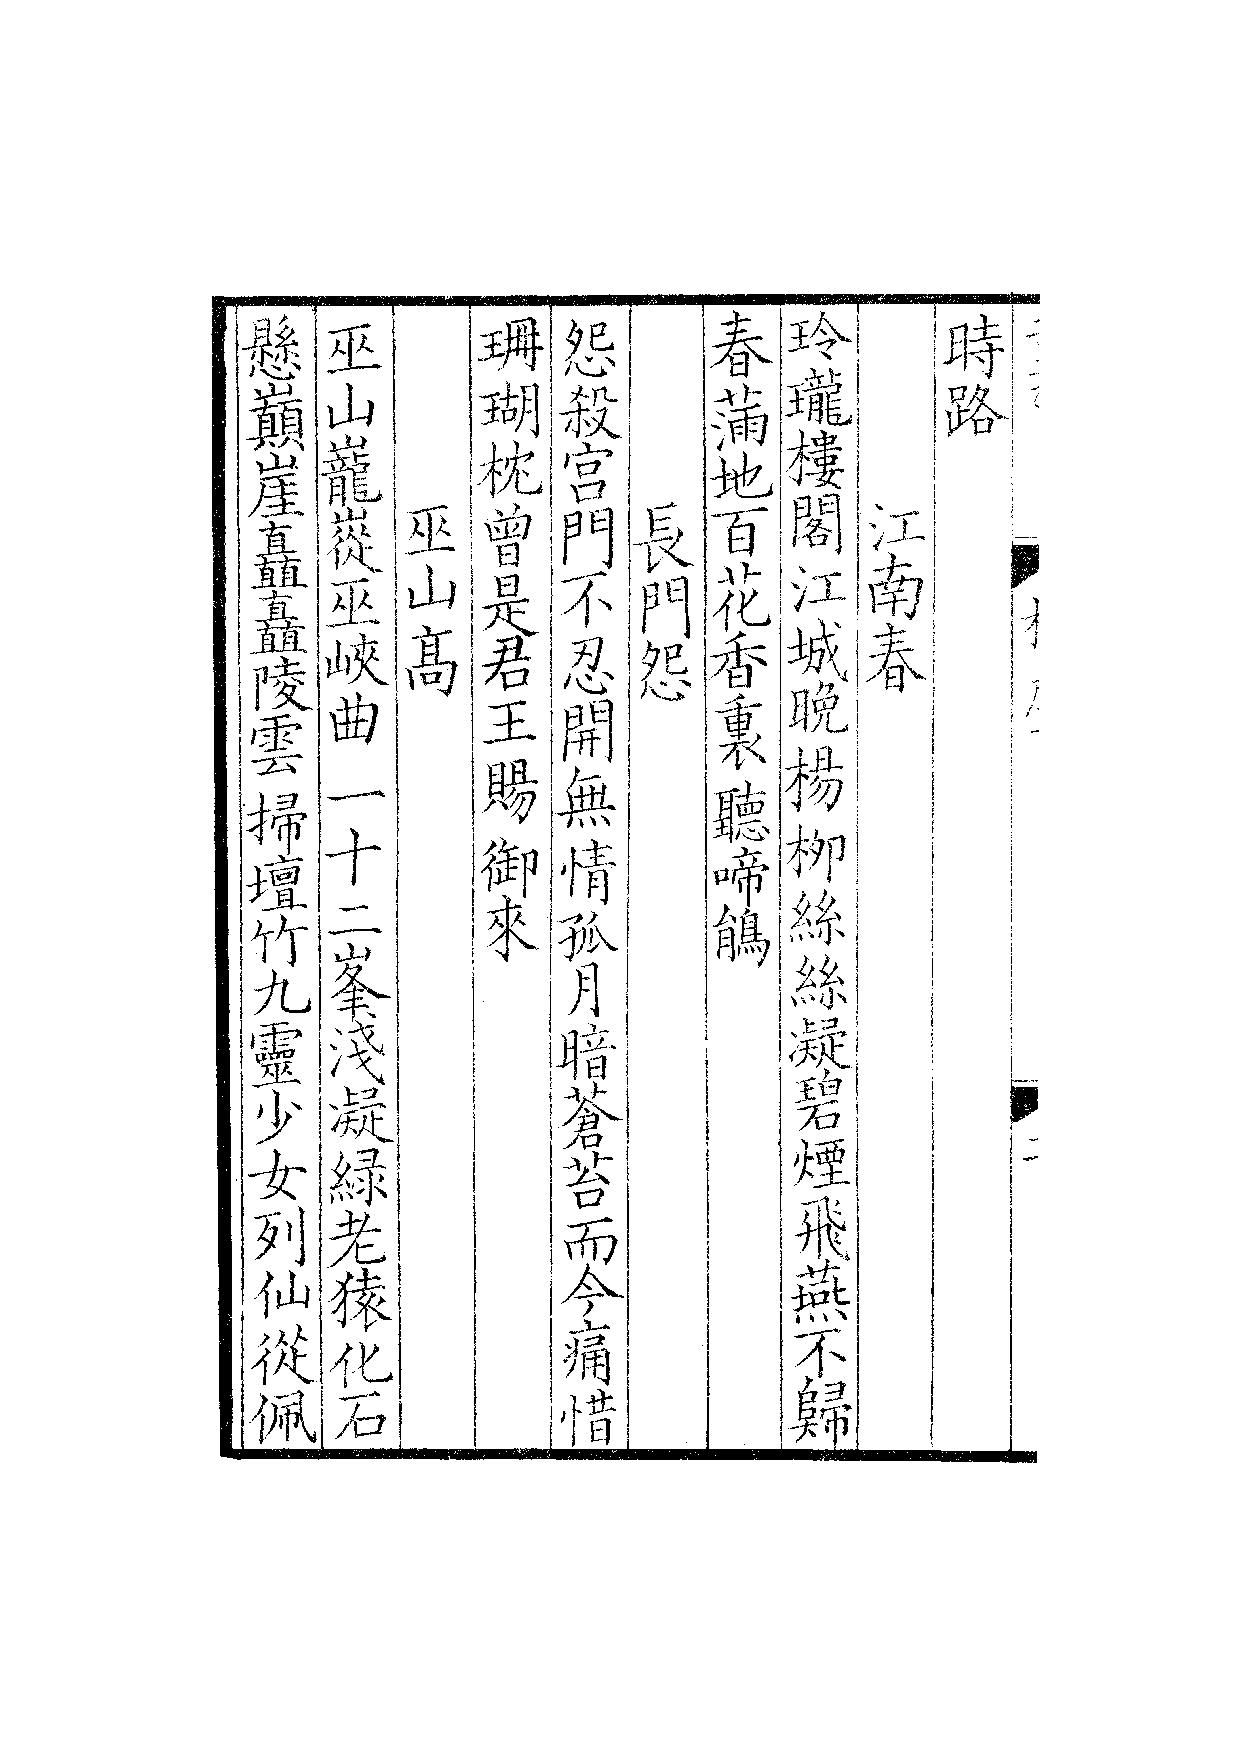 時路
江南春
玲瓏樓閣江城晚楊柳絲絲凝碧煙飛燕不歸
春滿地百花香裏聽啼鵑
長門怨
怨殺宫門不忍開無情孤月暗蒼苔而今痛惜
珊瑚枕曾是君王賜御來
巫山髙
巫山巃嵸巫峽曲一十二峯淺凝緑老猿化石
懸巔崖矗矗陵雲掃壇竹九靈少女列仙從佩
二